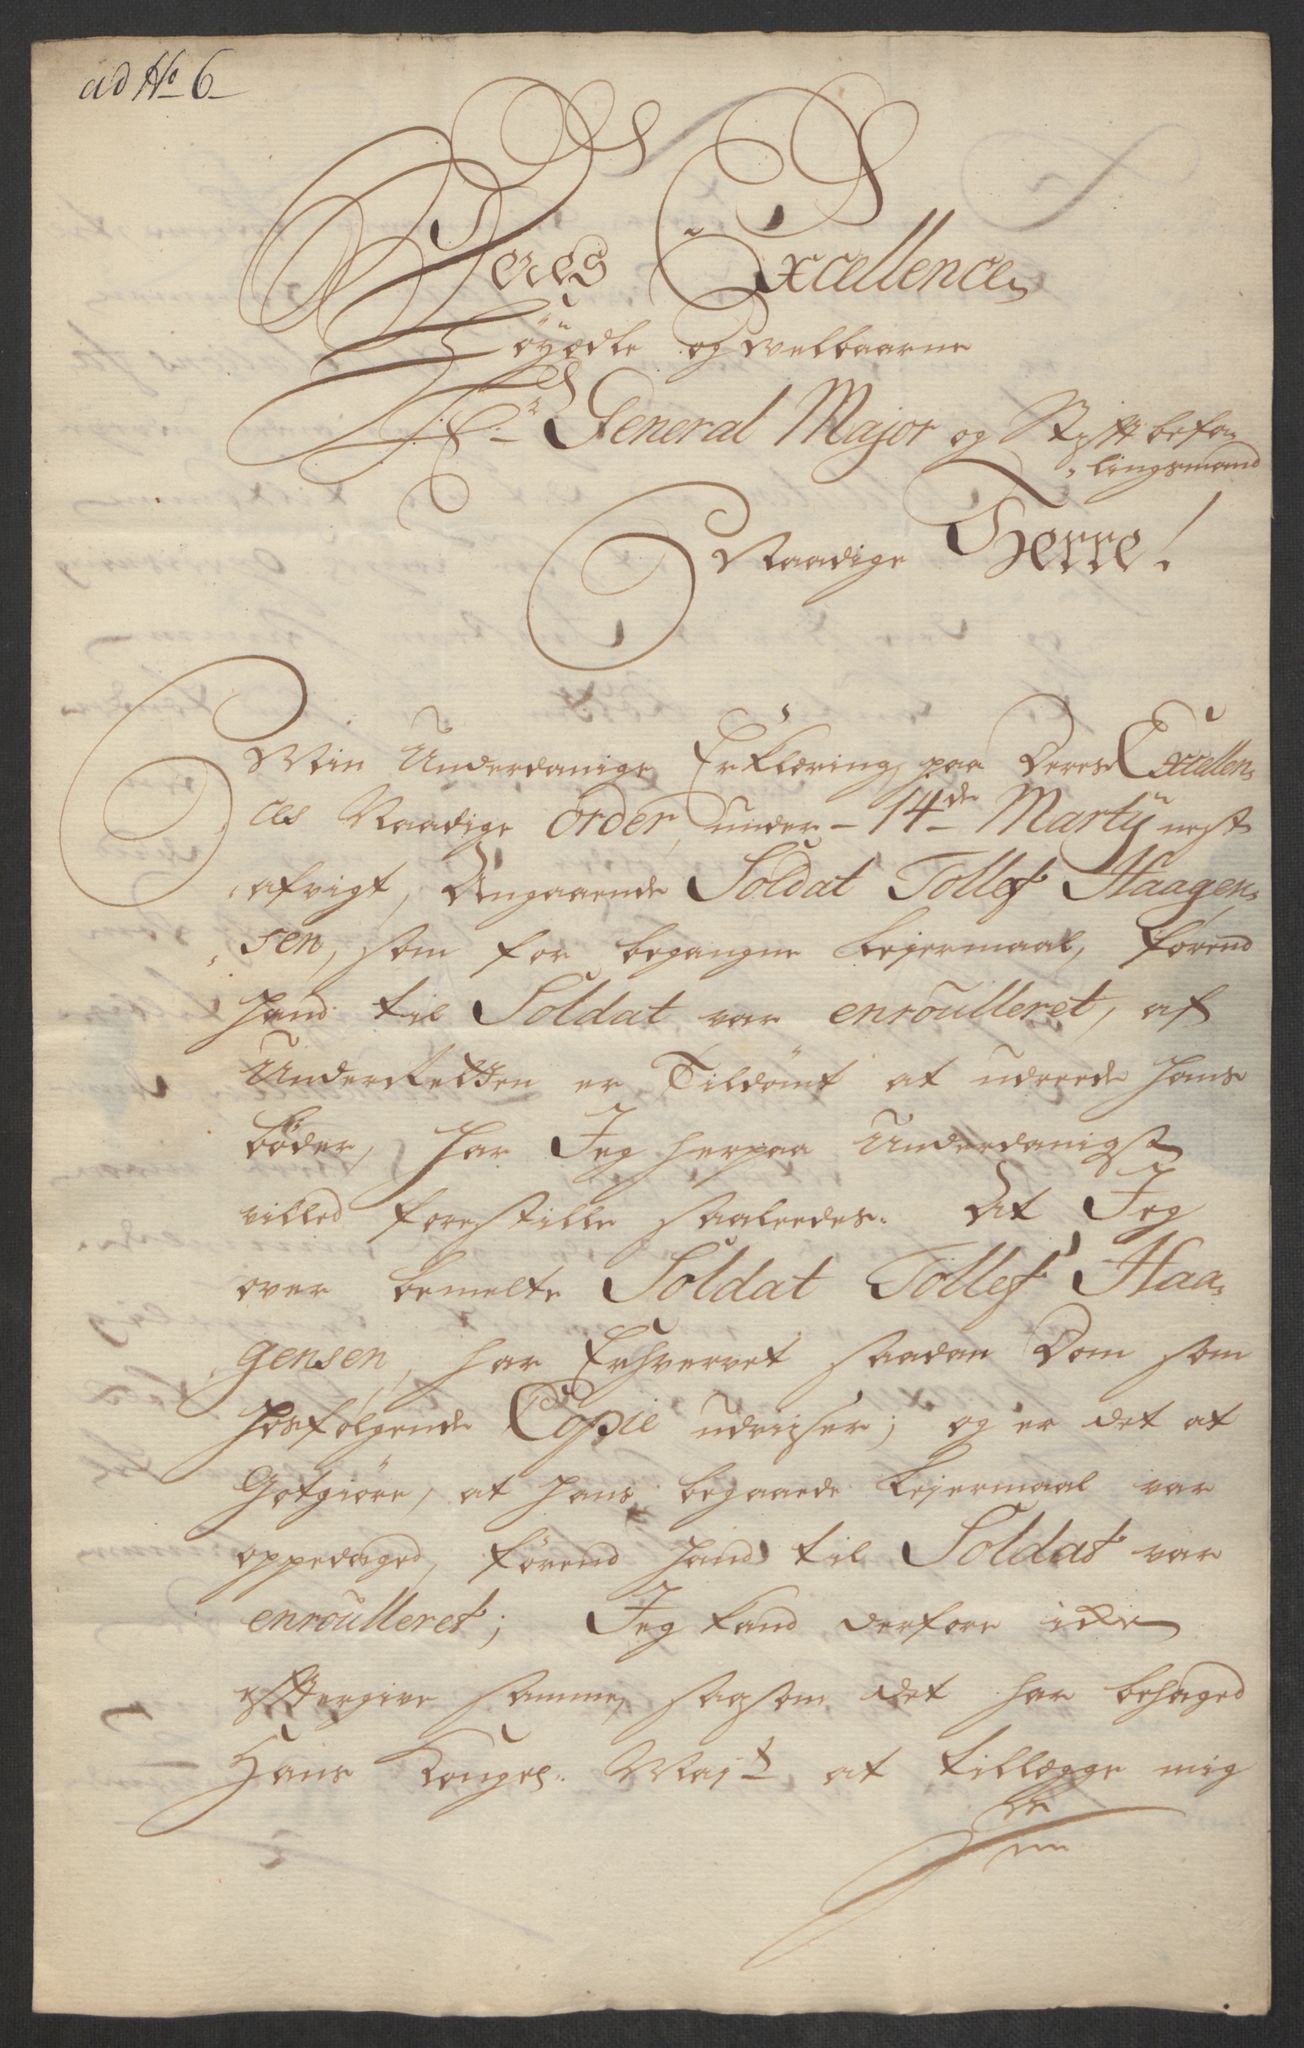 ad No 6
Deres Excellence
Höÿædle og Welbaarne
Hr. General Major og Stiftbefa-
lingsmand
Naadige Herre!
Min Underdanige Erklæring paa Deres Excellen-
ces Naadige order, under 14de Martÿ nest
afvigt, Angaaende Soldat Tollef Haagen-
sen, som for begangne Leyermaal, förend
hand til Soldat var enroulleret, af
UnderRetten er Tildömt at udreede hans
böder, har Jeg herpaa Underdanigst
villed forestille saaleedes. At Jeg
over bemelte Soldat Tollef Haa-
gensen, har Erhvervet saadan Dom som
hosfölgende Copie udviser; og er det at
Gotgiöre, at hans begaaede Leyermaal var
oppedaged, förend hand til Soldat var
enroulleret; Jeg kand derfore icke
eftergive samme, saasom det har behaged
Hans Kongel. Mayt at tillægge mig